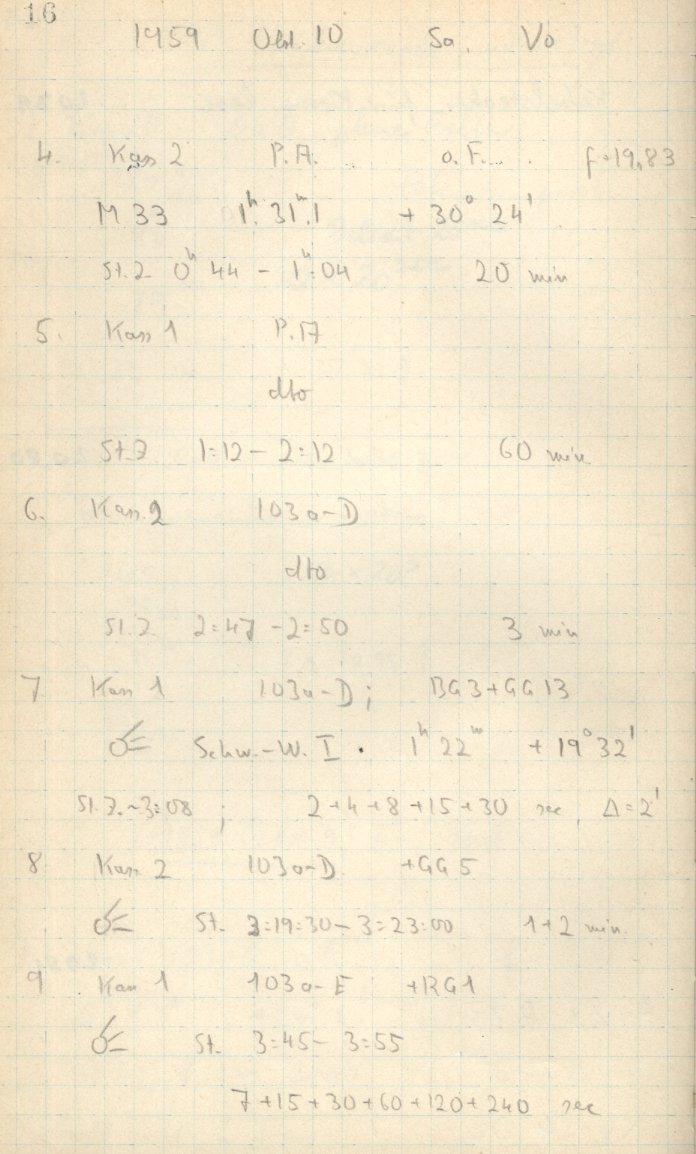 16
1959 Okt. 10 Sa. Vo
4. Kass 2 P.A. o.F. f=19,83
M 33 1h 31m,1 + 30° 24'
St.Z. 0h 44 - 1h:04 20 min
5. Kass 1 P.A
dto
St.Z 1:12 - 2:12 60 min
6. Kass.2 103a-D
dto
St.Z 2:47 - 2:50 3 min
7 Kass 1 103a-D; BG3+GG13
☄ Schw.-W. I. 1h 22m + 19° 32'
St.Z. ~3:08; 2+4+8+15+30 sec, Δ=2'
8 Kass 2 103a-D +GG5
☄ St. 3:19:30 - 3:23:00 1+2 min.
9 Kass 1 103a-E +RG1
☄ St. 3:45 - 3:55
7+15+30+60+120+240 sec